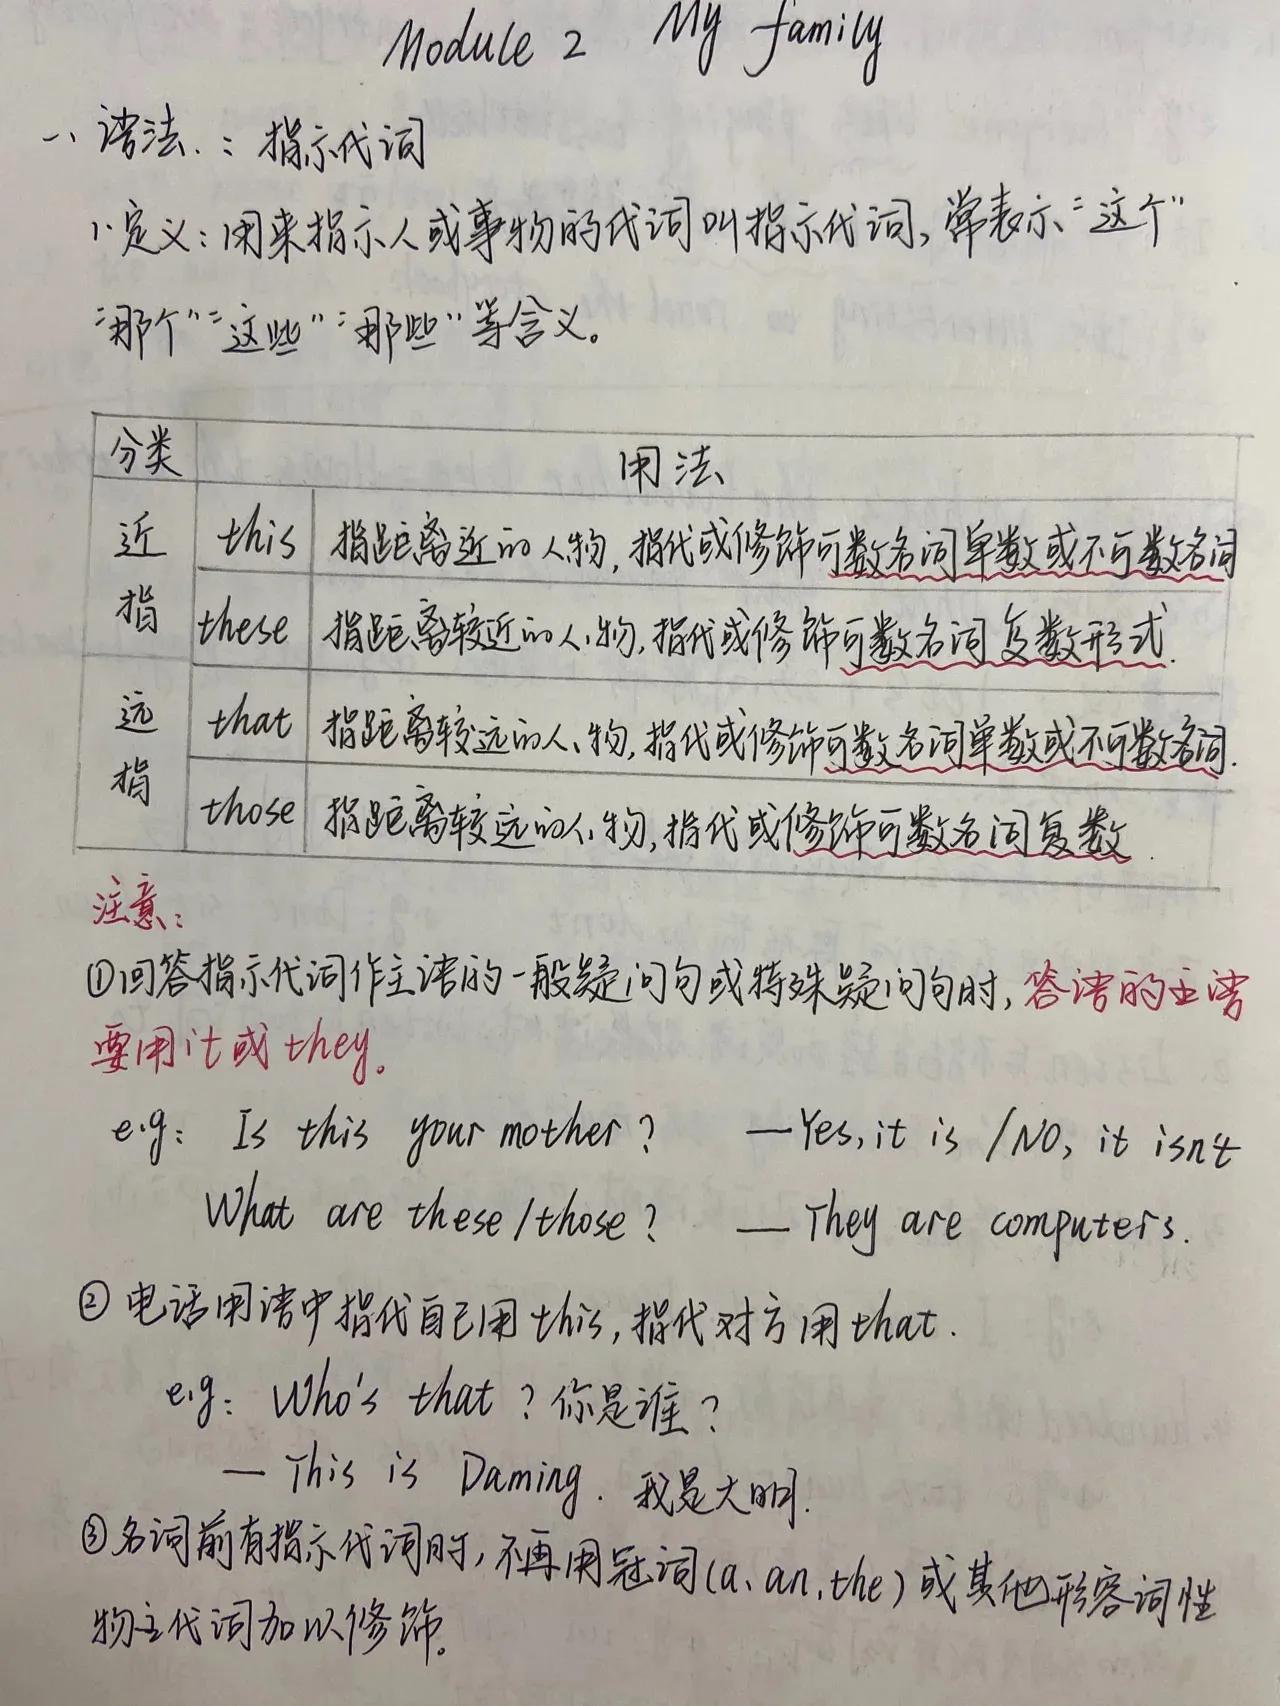 Module 2 My family
一、语法.：指示代词
1.定义：用来指示人或事物的代词叫指示代词，常表示“这个”
“那个”“这些”“那些”等含义。
分类 用法
近指 this 指距离近的人物，指代或修饰可数名词单数或不可数名词
these 指距离较近的人、物，指代或修饰可数名词复数形式.
远指 that 指距离较远的人、物，指代或修饰可数名词单数或不可数名词.
those 指距离较远的人、物，指代或修饰可数名词复数.
注意：
①回答指示代词作主语的一般疑问句或特殊疑问句时，答语的主语
要用it或they。
e.g: Is this your mother? —Yes, it is /NO, it isn't
What are these/those? — They are computers.
② 电话用语中指代自己用this，指代对方用that.
e.g: Who's that? 你是谁？
— This is Daming. 我是大明.
③名词前有指示代词时，不再用冠词(a、an,the)或其他形容词性
物主代词加以修饰。